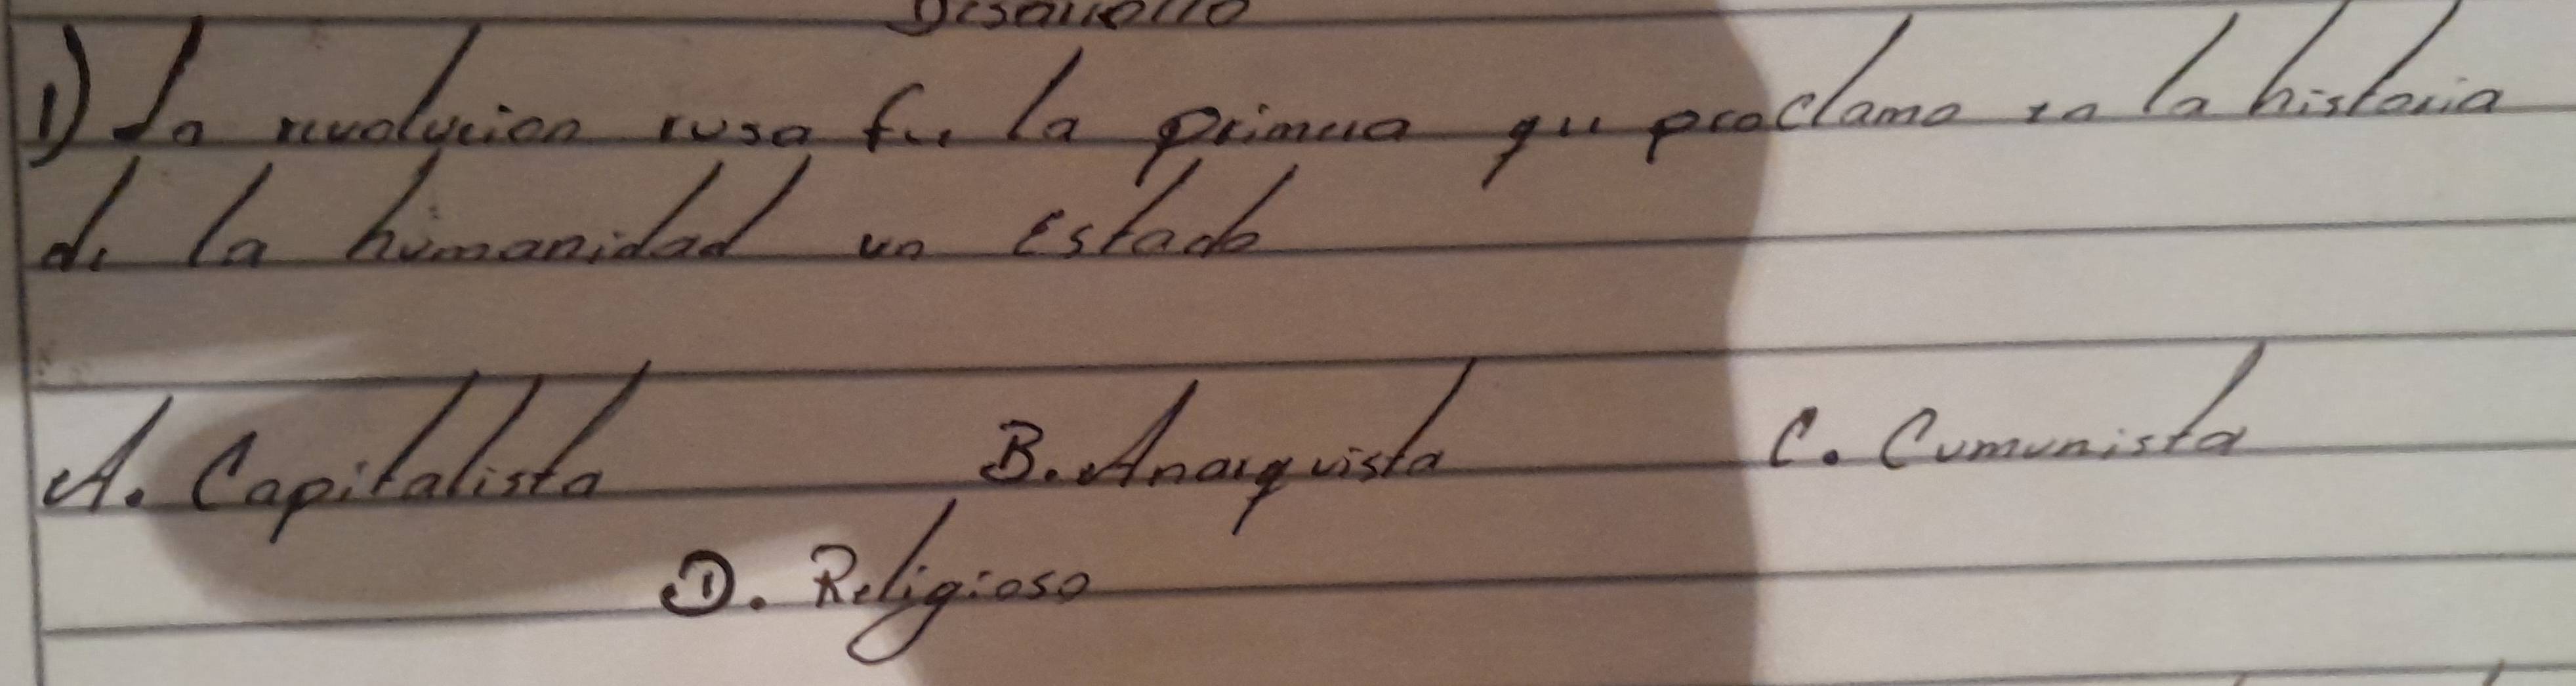 Desarrollo
1) La revolucion rusa fue la primera que proclamo en la historia
de la humanidad un Estado
A. Capitalista B. Anarquista C. Cumunista
D. Religioso